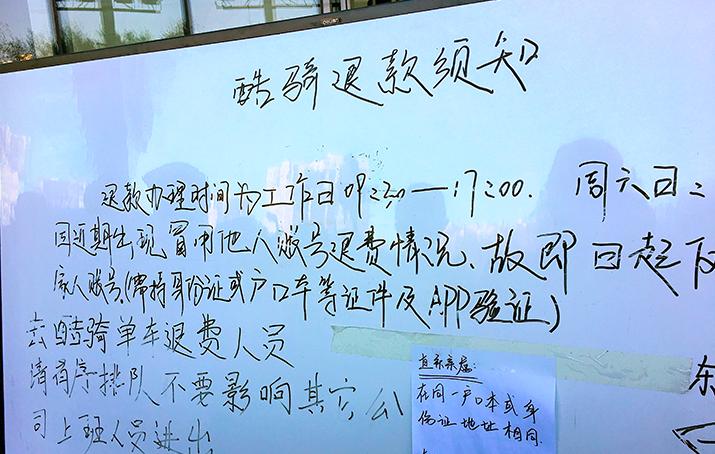 deli
酷骑退款须知
退款办理时间为工作日09:30—17:00. 周六日
因近期出现冒用他人账号退费情况、故即日起
家人账号,(需持身份证或户口本等证件及APP验证)
去酷骑单车退费人员
请有序排队不要影响其它公
司上班人员进出
直系亲属:
在同一户口本或身
份证地址相同.
东